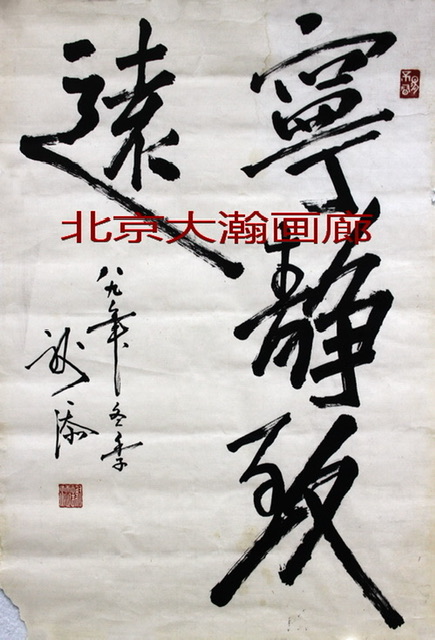 寧静致
遠
八九年冬季
谢添
北京大瀚画廊